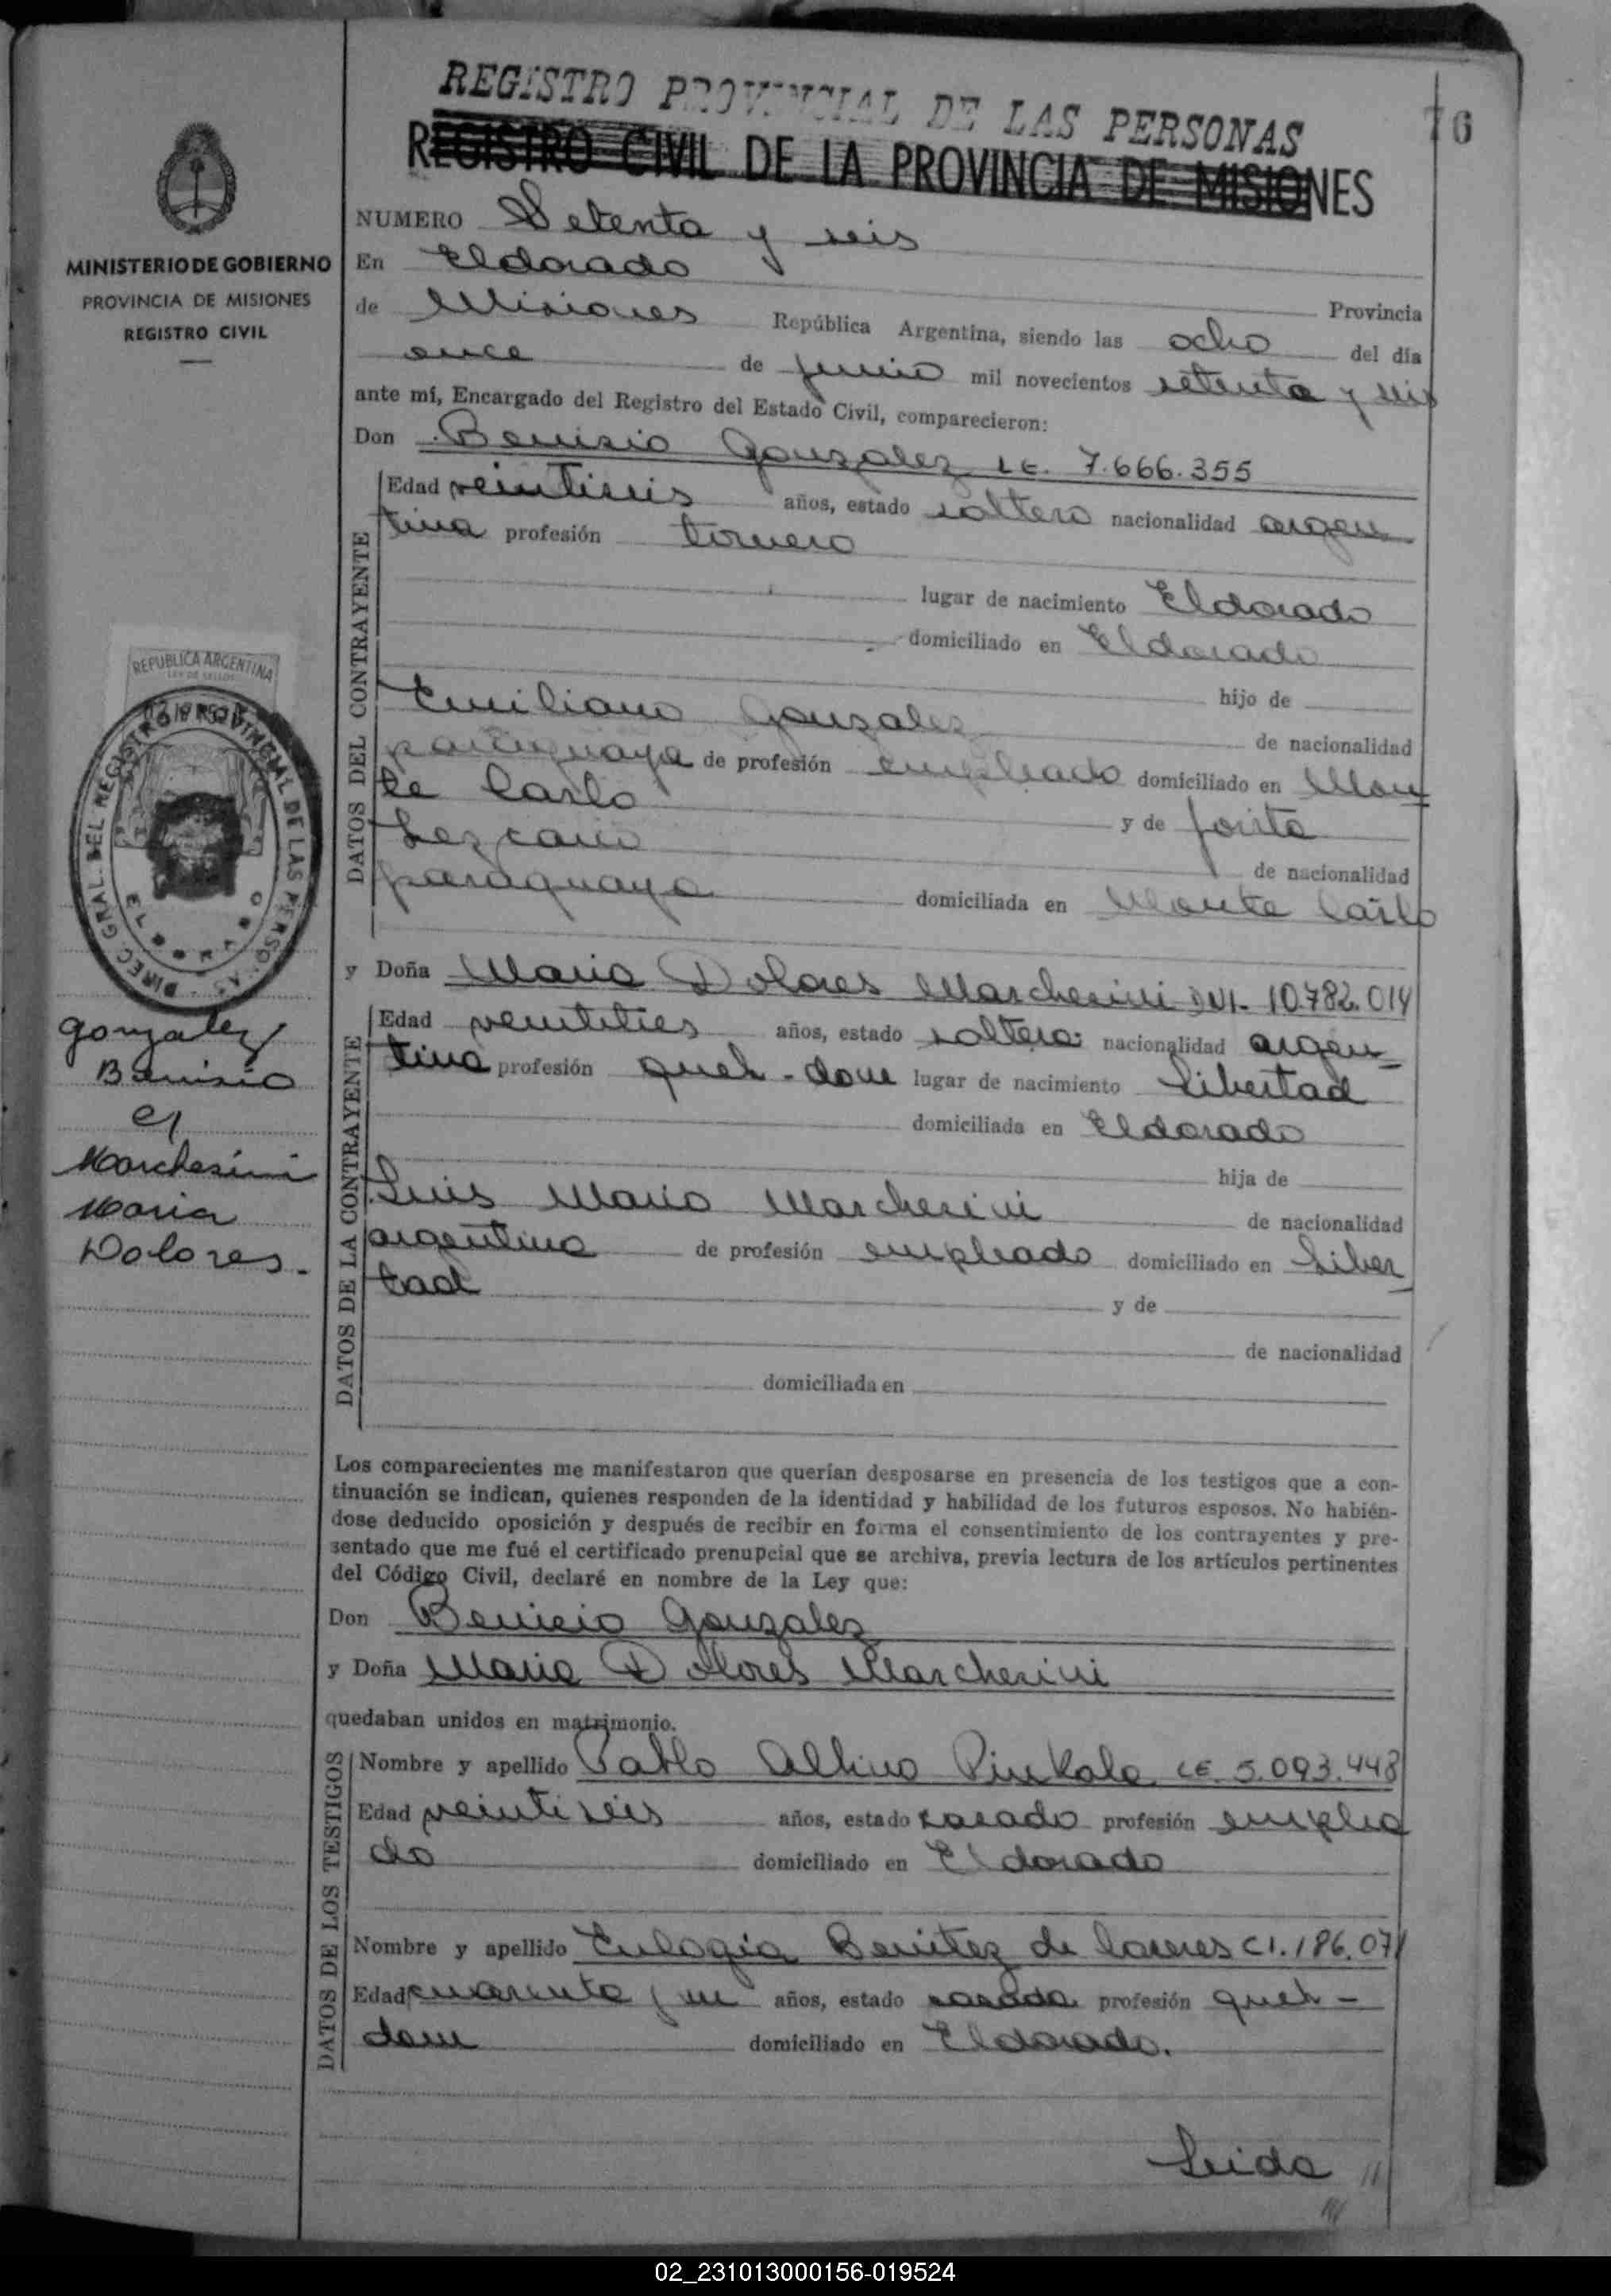 REGISTRO PROVINCIAL DE LAS PERSONAS
76
REGISTRO CIVIL DE LA PROVINCIA DE MISIONES
MINISTERIO DE GOBIERNO
PROVINCIA DE MISIONES
REGISTRO CIVIL
NUMERO Setenta y seis
En Eldorado Provincia
de Misiones República Argentina, siendo las ocho del día
once de junio mil novecientos setenta y seis
ante mí, Encargado del Registro del Estado Civil, comparecieron:
Don Benisio Gonzalez LE. 7.666.355
DATOS DEL CONTRAYENTE
Edad veintiseis años, estado soltero nacionalidad argen
tina profesión tornero
lugar de nacimiento Eldorado
domiciliado en Eldorado
hijo de
Emiliano Gonzalez de nacionalidad
paraguaya de profesión empleado domiciliado en Mon
te Carlo y de
Lezcano de nacionalidad
paraguaya domiciliada en Monte Carlo
REPUBLICA ARGENTINA
LEY DE SELLOS
DIREC. GRAL. DEL REGISTRO PROVINCIAL DE LAS PERSONAS
y Doña Maria Dolores Marchesini DNI. 10.782.014
DATOS DE LA CONTRAYENTE
Edad veintitres años, estado soltera nacionalidad argen
tina profesión queh-dom lugar de nacimiento Libertad
domiciliada en Eldorado
hija de
Luis Mario Marchesini de nacionalidad
argentina de profesión empleado domiciliado en Liber
tad y de
de nacionalidad
domiciliada en
Gonzalez
Benisio
Marchesini
Maria
Dolores.-
Los comparecientes me manifestaron que querían desposarse en presencia de los testigos que a con-
tinuación se indican, quienes responden de la identidad y habilidad de los futuros esposos. No habién-
dose deducido oposición y después de recibir en forma el consentimiento de los contrayentes y pre-
sentado que me fué el certificado prenupcial que se archiva, previa lectura de los artículos pertinentes
del Código Civil, declaré en nombre de la Ley que:
Don Benicio Gonzalez
y Doña Maria Dolores Marchesini
quedaban unidos en matrimonio.
DATOS DE LOS TESTIGOS
Nombre y apellido Pablo Albino Pinkola LE. 5.093.448
Edad veintiseis años, estado casado profesión emplea
do domiciliado en Eldorado
Nombre y apellido Eulogia Benitez de CI. 186.071
Edad cuarenta y un años, estado casada profesión queh-
dom domiciliado en Eldorado.
Leida ///
02_231013000156-019524